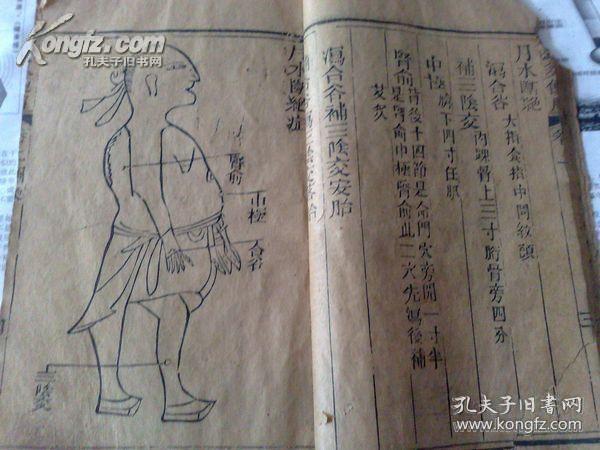 月水斷絕
瀉合谷 大指食指中間紋頭
補三陰交 內踝骨上三寸骱骨旁四分
中極 臍下四寸任脈
腎俞 背後十四節是命門穴旁開一寸半
腎俞是腎俞中極腎俞此二穴先瀉後補
艾灸
瀉合谷補三陰交安胎
月水斷絕症
腎俞
中極
合谷
三陰交
Kongfz.com
孔夫子旧书网
孔夫子旧书网
www.kongfz.com